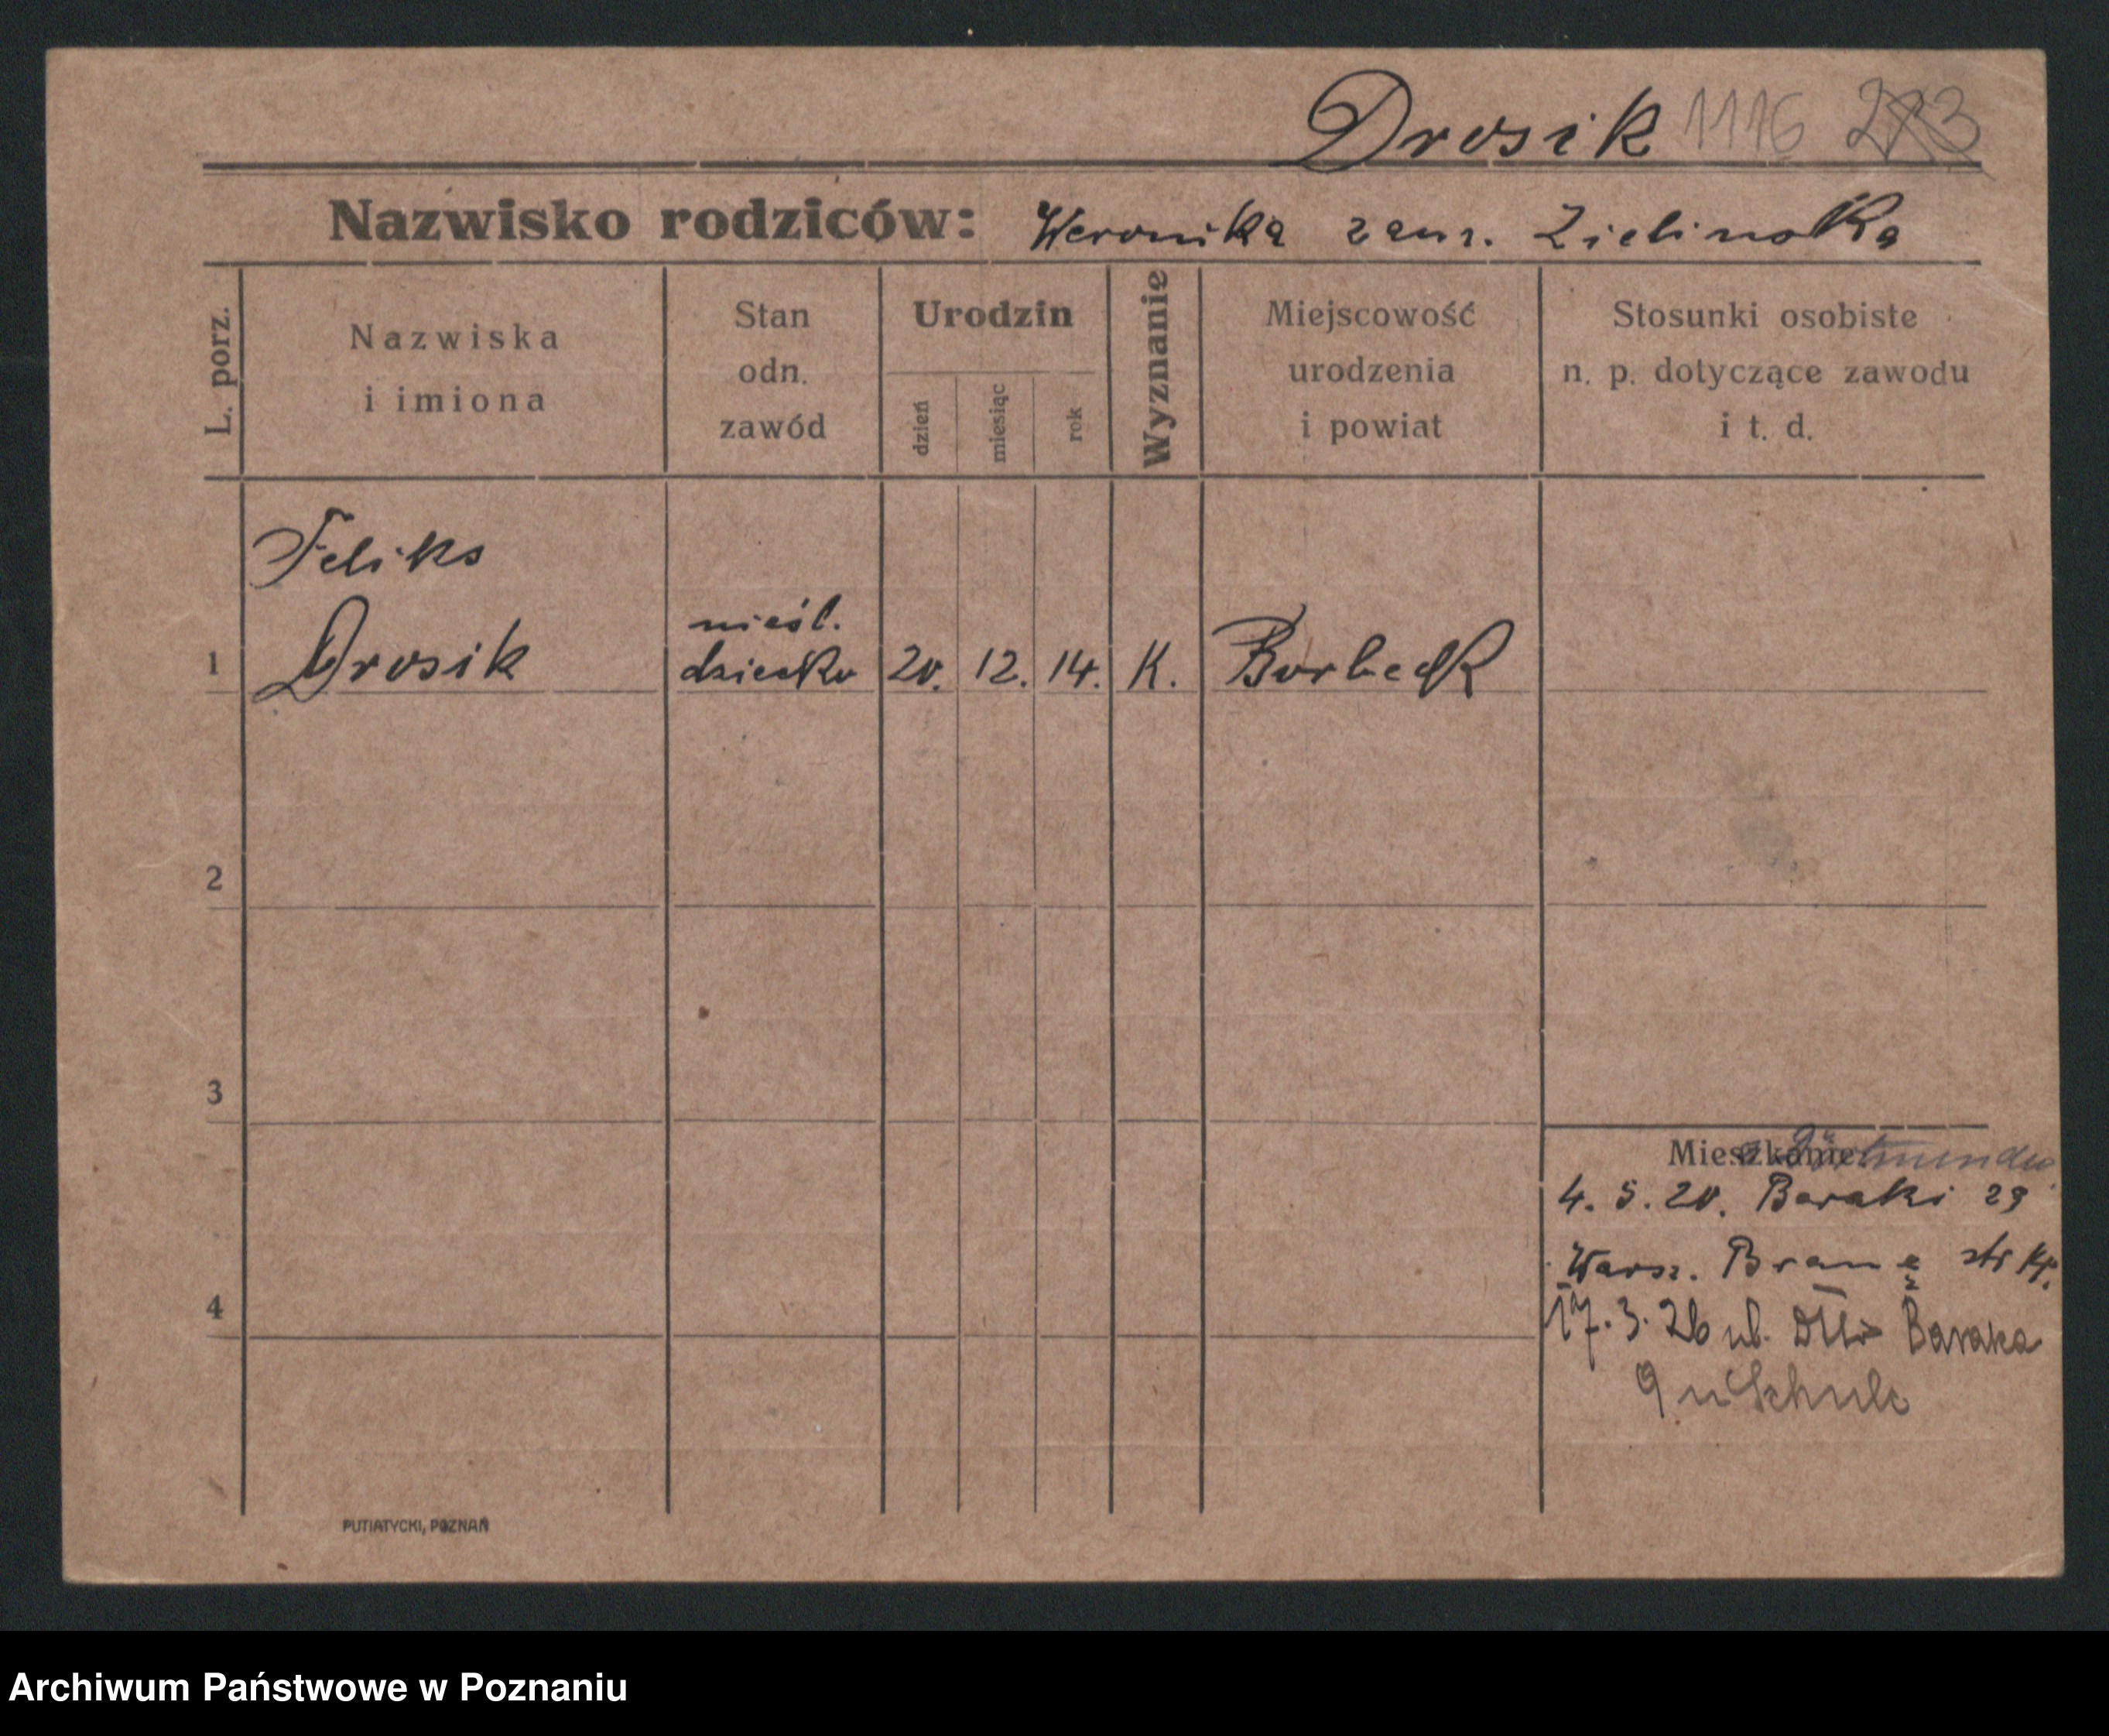 Drosik 1116 273
Nazwisko rodziców: Weronika zam. Zielinska
L. porz.
Nazwiska
i imiona
Stan
odn.
zawód
Urodzin
dzień
miesiąc
rok
Wyznanie
Miejscowość
urodzenia
i powiat
Stosunki osobiste
n. p. dotyczące zawodu
i t. d.
Feliks
1 Drosik nieśl. dziecko 20. 12. 14. K. Borbeck
2
3
Mieszkanie z Dortmundu
4. 5. 20. Baraki 29
Warsz. Bramę
4
17. 3. 26 ul. Baraka
9 u Schulc
PUTIATYCKI, POZNAŃ
Archiwum Państwowe w Poznaniu